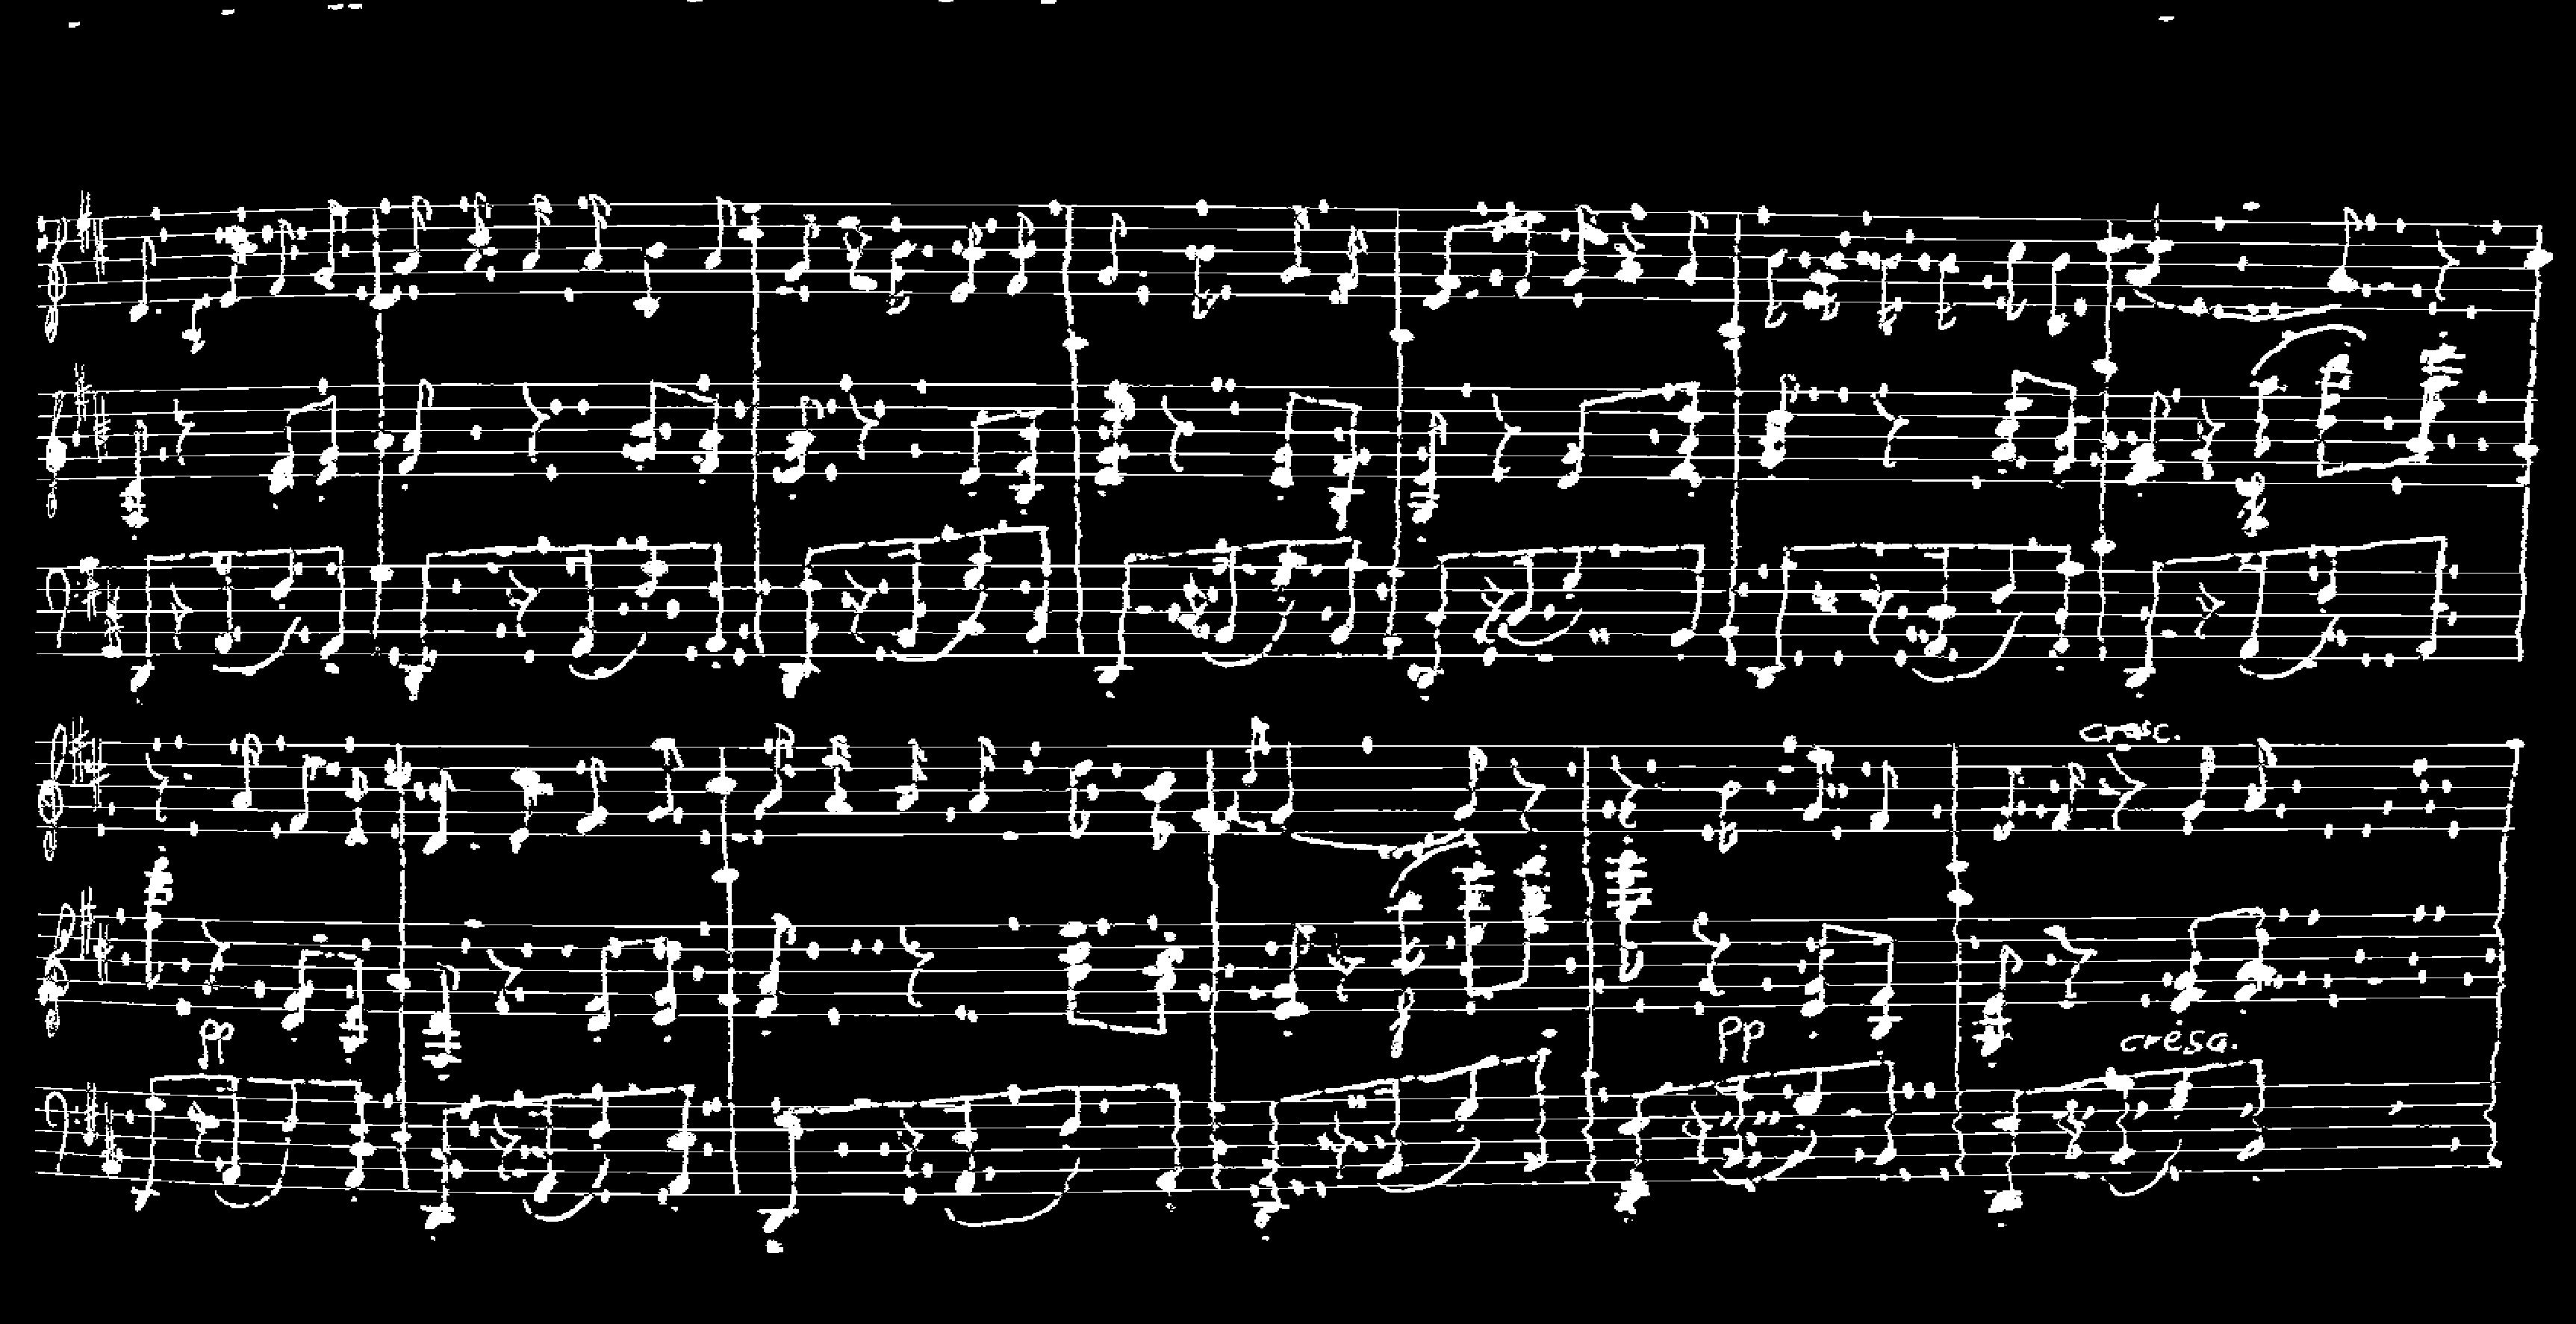 cresc.
pp
pp
cresc.